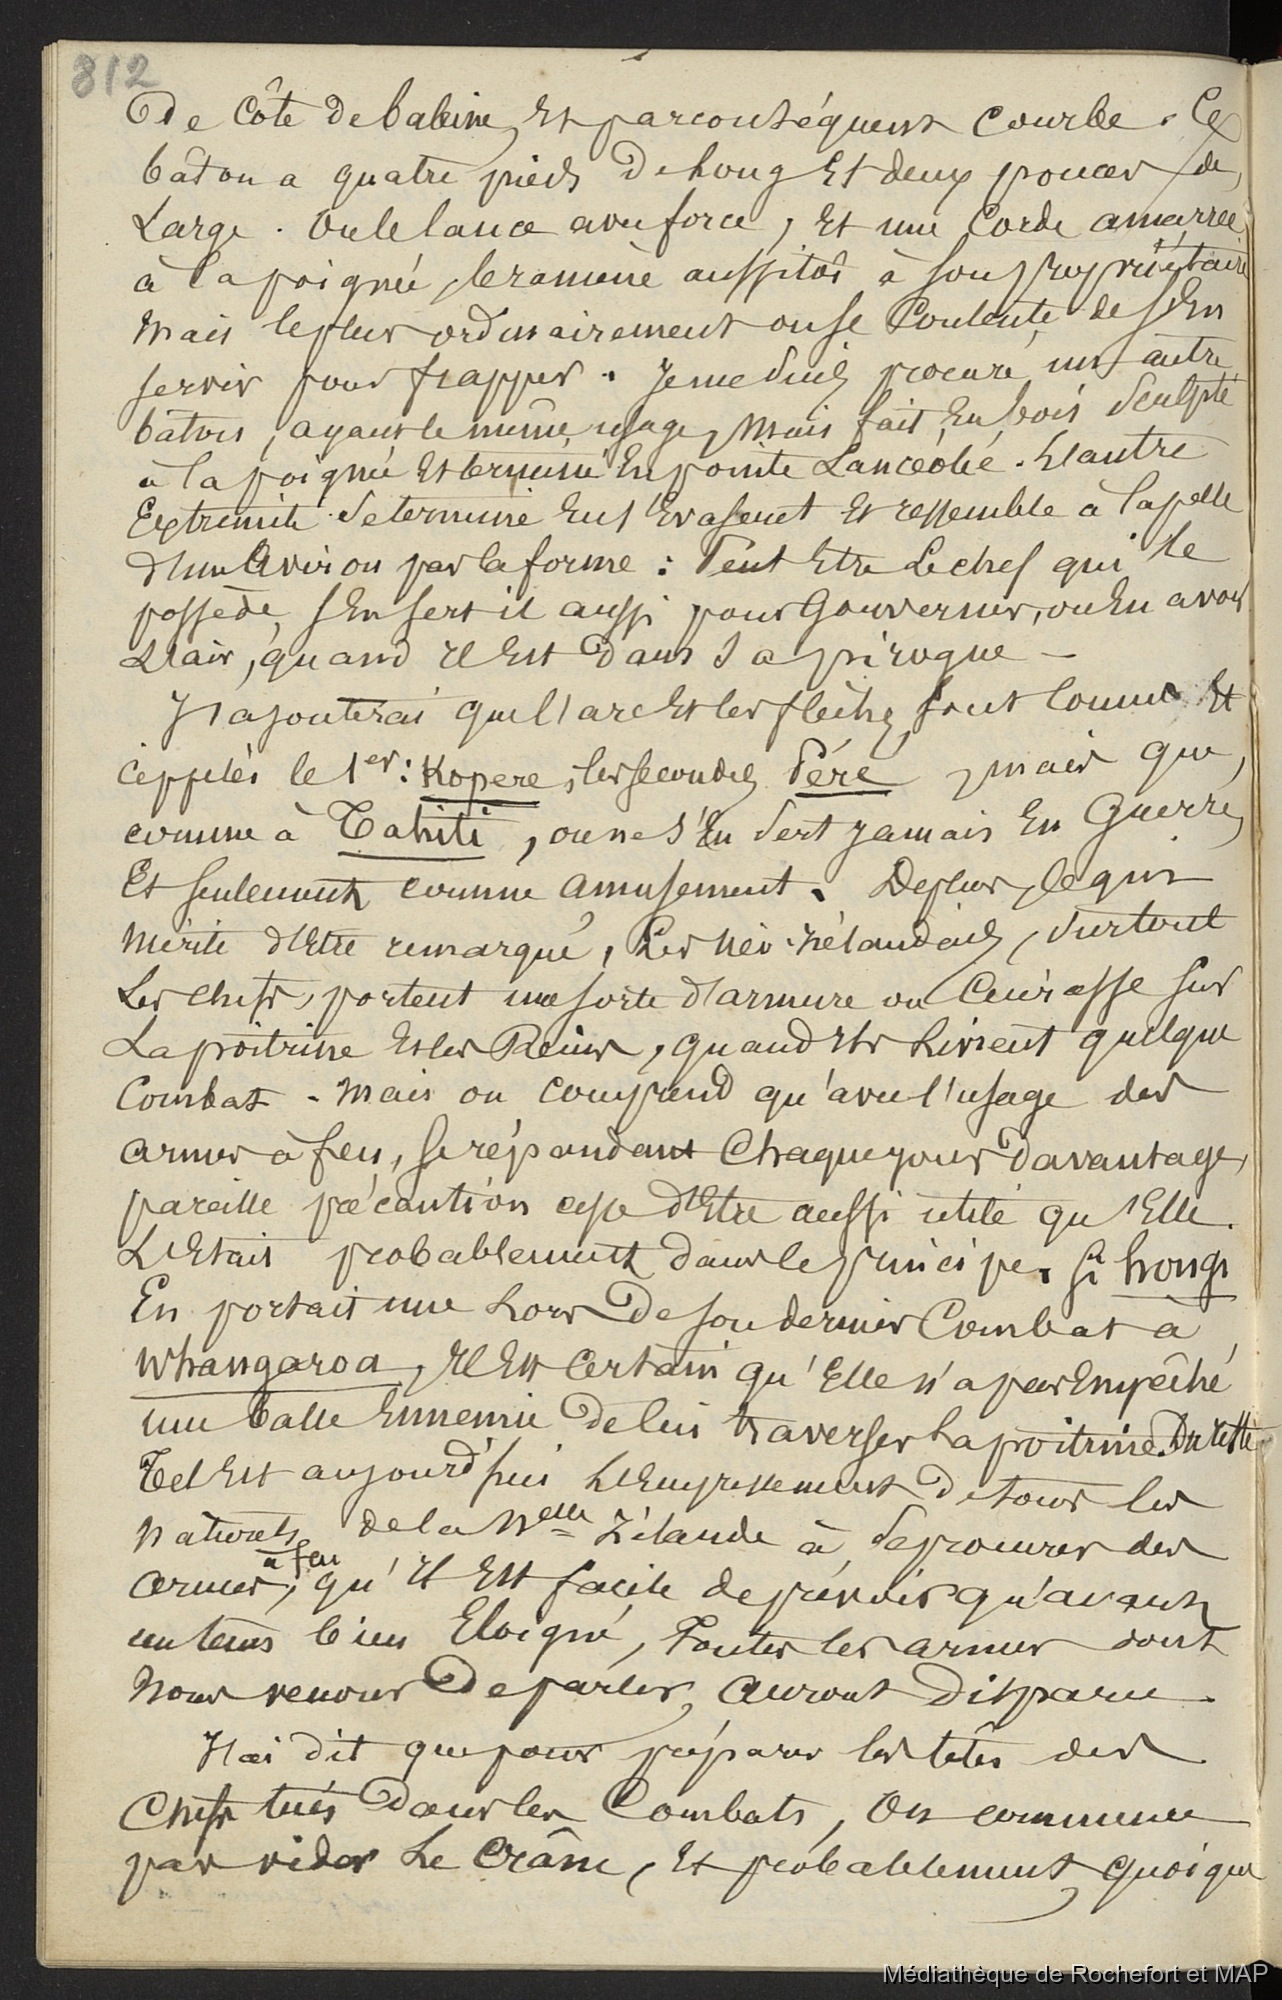 812
De Côte de baleine, Et parconséquent Courbe. Ce
bâton a quatre pieds De Long Et deux pouces de
Large. On le lance avec force, Et une Corde amarrée
à la poignée, le ramène aussitôt à son propriétaire
Mais le plus ordinairement on se Contente de s'En
servir pour frapper. Je me suis procuré un autre
bâton, ayant le même usage, Mais fait En bois Sculpté
à la poignée Et terminé En pointe Lancéolée. L'autre
Extrémité se termine En s'Evasent Et ressemble à la pelle
d'un Aviron par la forme : Peut Etre Le chef qui le
possède, s'En sert il aussi pour Gouverner, ou En avoir
L'air, quand Il Est Dans Sa pirogue —
J'ajouterai que l'arc Et les flèches sont Connus Et
appelés le 1er : Kopere, les secondes Péré, mais que,
comme à Tahiti, on ne s'En Sert jamais En Guerre,
Et seulement comme amusement. De plus, ce qui
Mérite d'Etre remarqué, Les Néo-Zélandais, Surtout
Les chefs, portent une sorte d'armure ou Cuirasse Sur
La poitrine Et les Reins, quand Ils Livrent quelque
Combat. Mais on comprend qu'avec l'usage des
armes à feu, se répandant Chaque jour Davantage,
pareille précaution cesse d'Etre aussi utile qu'Elle
L'Etait probablement dans le principe. Si hongi
En portait une Lors De son dernier Combat à
Whangaroa, Il Est Certain qu'Elle n'a pas Empêché
une balle Ennemie De lui traverser La poitrine. Du reste
Tel Est aujourd'hui L'Empressement De tous les
Naturels de la Nelle Zélande à Se procurer des
armes à feu, qu'Il Est facile de prévoir qu'avant
un tems bien Eloigné, Toutes les armes dont
Nous venons De parler, Auront Disparu.
J'ai dit que pour préparer les têtes des
Chefs tués Dans les Combats, On commence
par vider Le Crâne, Et probablement, quoique
Médiathèque de Rochefort et MAP